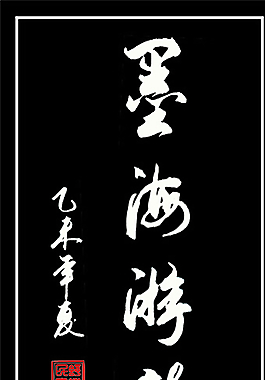 墨海游
乙未年夏